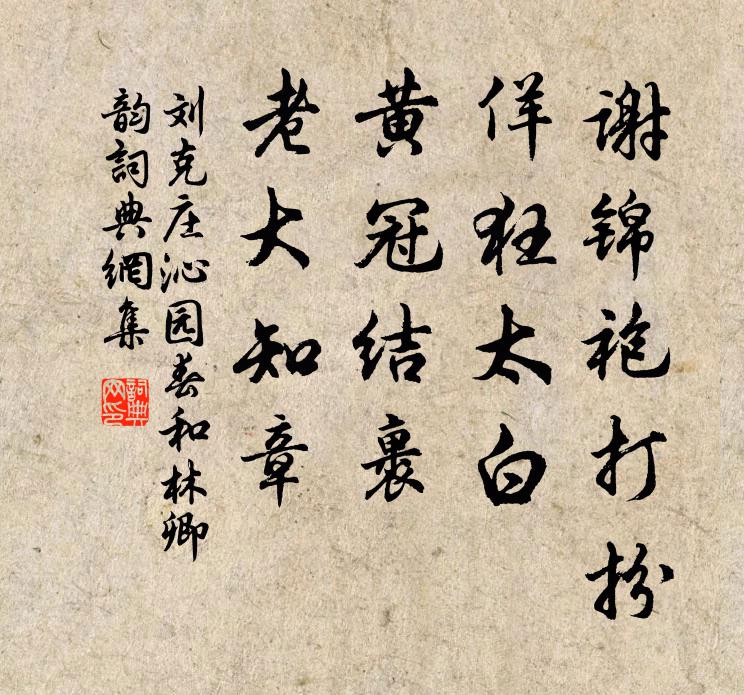 谢锦袍打扮
佯狂太白
黄冠结裹
老大知章
刘克庄沁园春和林卿
韵詞典網集
詞典
网印